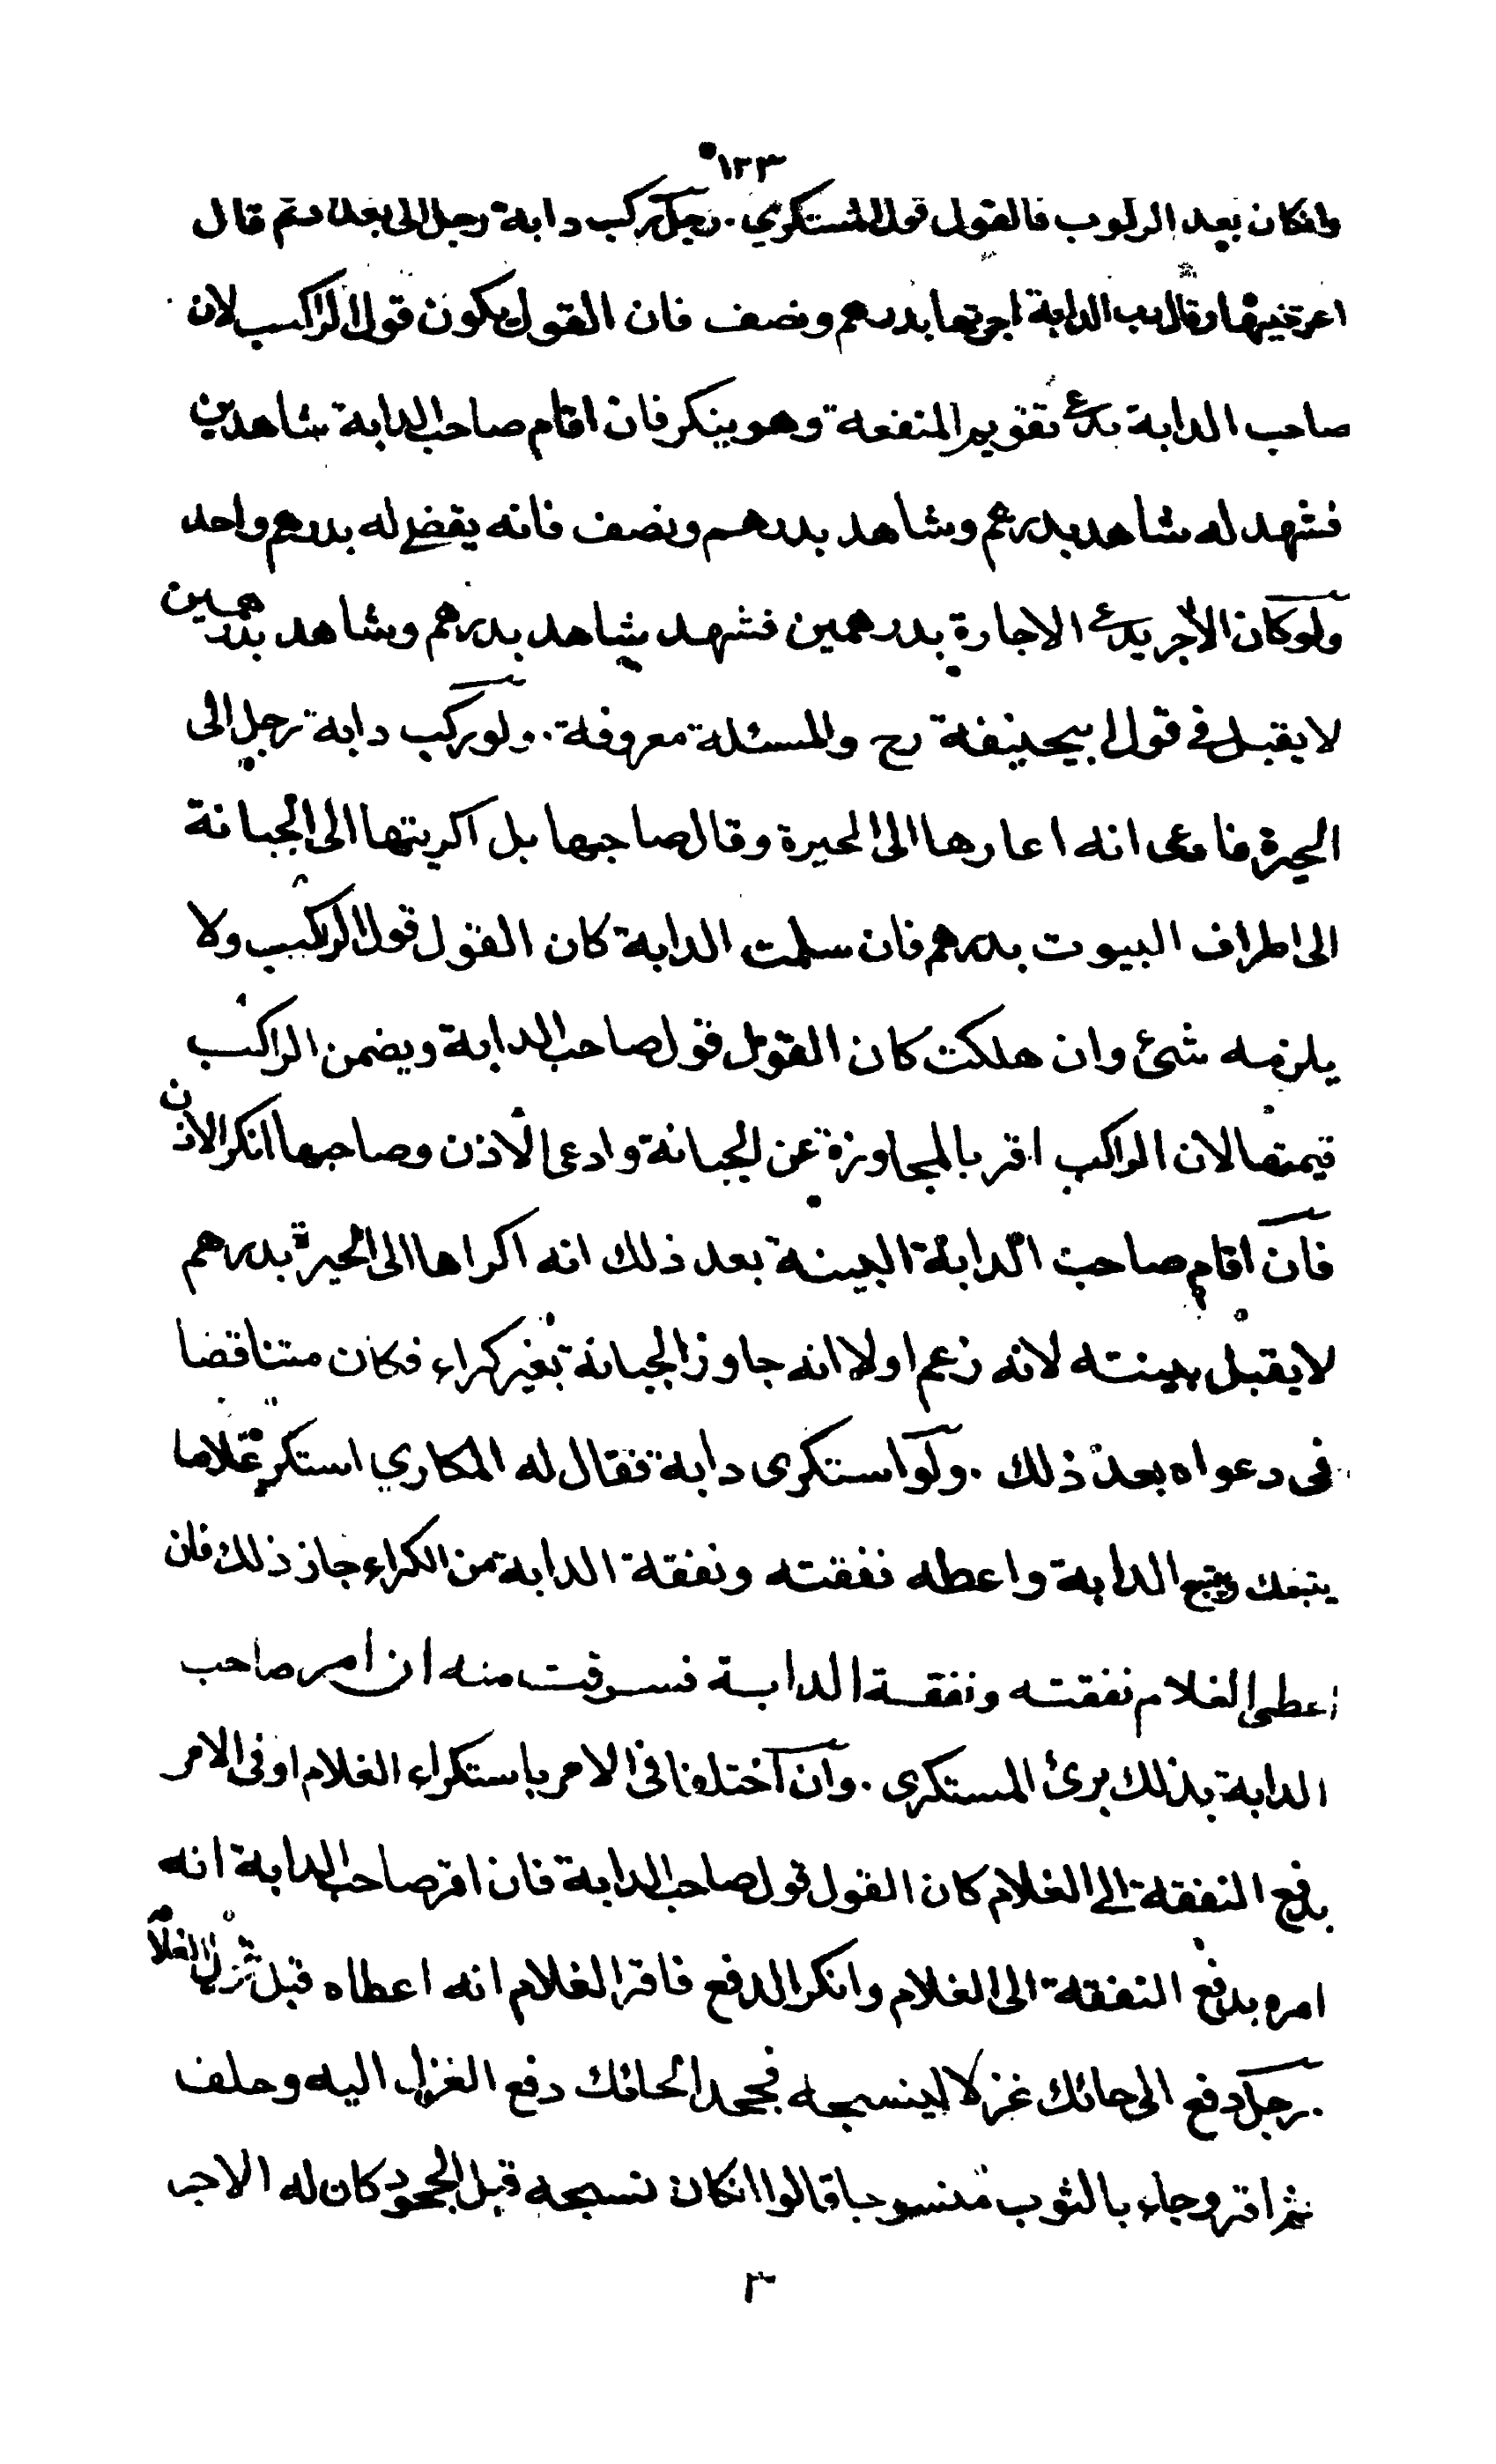 ١٢٣
وانكان بعد الركوب فالقول قول المستكري . رجل ركب دابة رجل الى بغداد ثم قال
اعرتنيها وقال رب الدابة اجرتها بدرهم ونصف فان القول يكون قول الراكب لان
صاحب الدابة يدعي تقويم المنفعة وهو ينكر فان اقام صاحب الدابة شاهدين
فشهد له شاهد بدرهم وشاهد بدرهم ونصف فانه يقضي له بدرهم واحد
ولو كان الآجر يدعي الاجارة بدرهمين فشهد شاهد بدرهم وشاهد بدرهمين
لا يقبل في قول ابيحنيفة رح والمسئلة معروفة . ولو ركب دابة رجل الى
الحيرة فادعى انه اعارها الى الحيرة وقال صاحبها بل اكريتها الى الجبانة
الى اطراف البيوت بدرهم فان سلمت الدابة كان القول قول الراكب ولا
يلزمه شئ وان هلكت كان القول قول صاحب الدابة ويضمن الراكب
قيمتها لان الراكب اقر بالمجاوزة عن الجبانة وادعى الاذن وصاحبها انكر الاذن
فان اقام صاحب الدابة البينة بعد ذلك انه اكراها الى الحيرة بدرهم
لا يقبل بينته لانه زعم اولا انه جاوز الجبانة بغير كراء فكان متناقضا
في دعواه بعد ذلك . ولو استكرى دابة فقال له المكاري استكر غلاما
يتبعك ويتبع الدابة واعطه نفقته ونفقة الدابة من الكراء جاز ذلك فان
اعطى الغلام نفقته ونفقة الدابة فسرقت منه ان امر صاحب
الدابة بذلك برئ المستكري . وان اختلفا في الامر باستكراء الغلام او في الامر
بدفع النفقة الى الغلام كان القول قول صاحب الدابة فان اقر صاحب الدابة انه
امره بدفع النفقة الى الغلام وانكر الدفع فاقر الغلام انه اعطاه قبل الغلام
رجل دفع الى حائك غزلا لينسجه فجحد الحائك دفع الغزل اليه وحلف
ثم اقر وجاء بالثوب منسوجا قالوا انكان نسجه قبل الجحود كان له الاجر